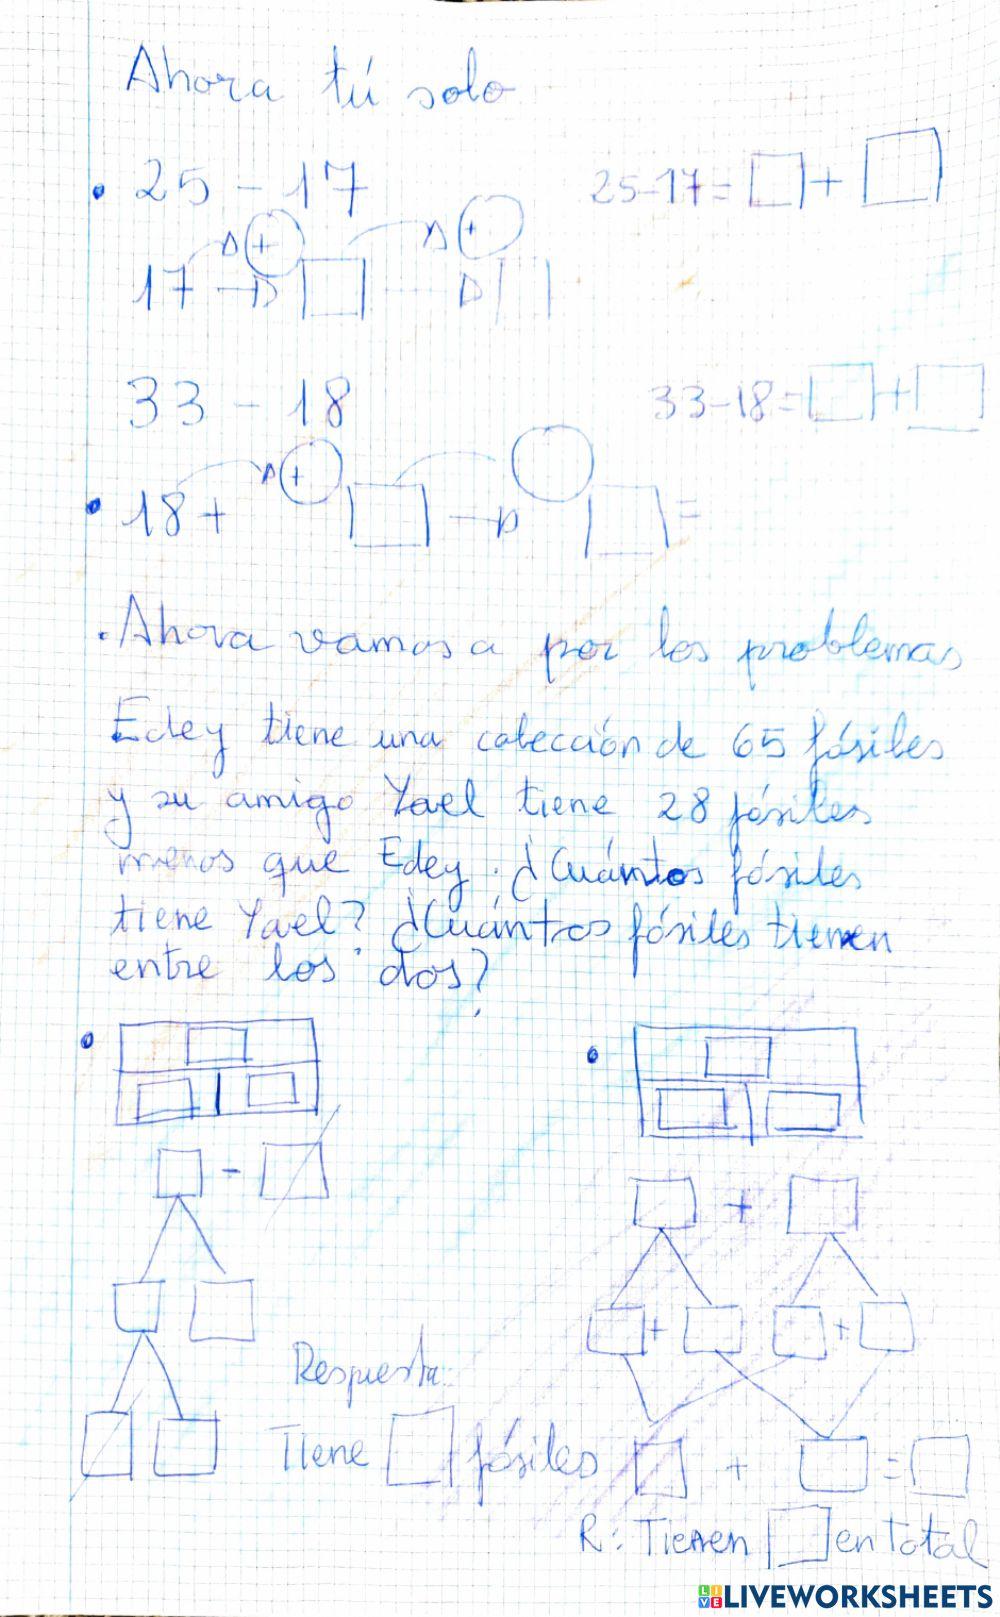 Ahora tú solo
25 - 17
25-17= + 
+ +
17
33 - 18
33-18= +
+
18 + =
. Ahora vamos a por los problemas
Edey tiene una colección de 65 fósiles
y su amigo Yael tiene 28 fósiles
menos que Edey. ¿Cuántos fósiles
tiene Yael? ¿Cuántos fósiles tienen
entre los dos?
-
+
+ +
Respuesta:
Tiene fósiles
+ =
R: Tienen en total
LIVEWORKSHEETS